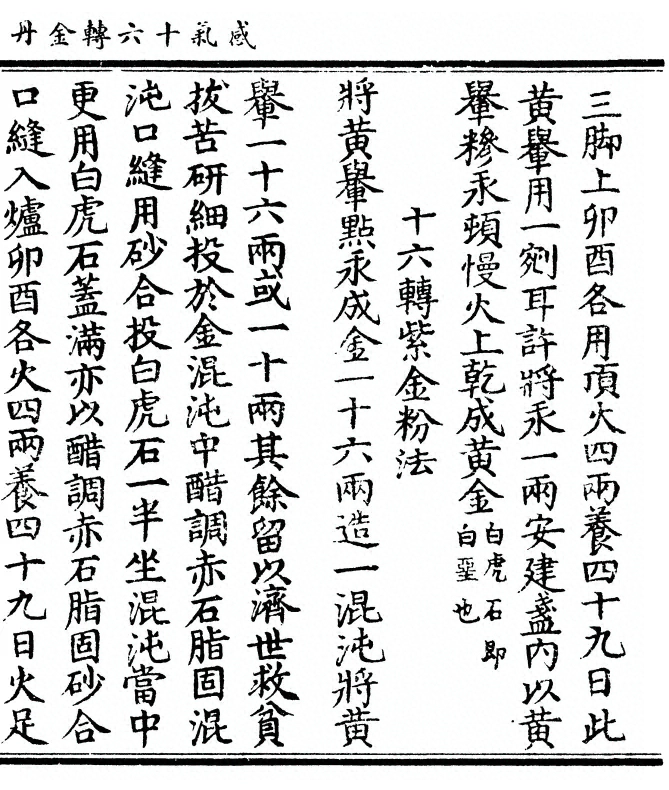 感氣十六轉金丹
三脚上卯酉各用頂火四兩養四十九日此
黄轝用一剜耳許將汞一兩安建盞内以黄
轝糝汞頓慢火上乾成黄金白虎石即
白堊也
十六轉紫金粉法
將黄轝點汞成金一十六兩造一混沌將黄
轝一十六兩或一十兩其餘留以濟世救貧
拔苦研細投於金混沌中醋調赤石脂固混
沌口縫用砂合投白虎石一半坐混沌當中
更用白虎石蓋滿亦以醋調赤石脂固砂合
口縫入爐卯酉各火四兩養四十九日火足